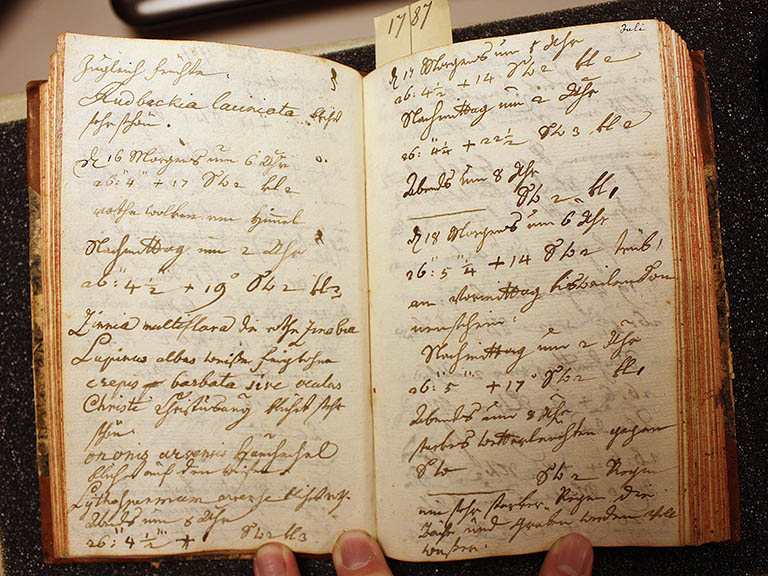 1787
zugleich Früchte.
Rudbeckia laciniata blüht
sehr schön.
D 16 Morgens um 6 Uhr
26" 4''' + 17 SW 2 bl 2
rothe wolken am Himmel
Nachmittag um 2 Uhr
26" 4 1/2 + 19° SW 2 bl 3
Zinnia multiflora die rothe
Lupinus albus weiße feigbohne
crepis barbata sive oculus
Christi blühet sehr
schön.
ononis arvensis Hauhechel
blühet auf den wiesen
Lythospermum arvense
Abends um 8 Uhr
26" 4 1/2''' + SW 2 bl 3
Juli
D 17 Morgens um 5 Uhr
26: 4 1/2 + 14 SW 2 bl 2
Nachmittag um 2 Uhr
26: 4 1/4 + 22 1/2 SW 3 bl 2
Abends um 8 Uhr
SW 2 bl 1
D 18 Morgens um 6 Uhr
26": 5''' 1/4 + 14 SW 2 trüb 1
am Vormittag bisweilen Son
nenschein.
Nachmittag um 2 Uhr
26": 5''' + 17° SW 2 bl 1
Abends um 8 Uhr
starkes wetterleuchten gegen
SW
SW 2 Regen
ein sehr starker Regen die
Bäche und Graben werden voll
wasser.